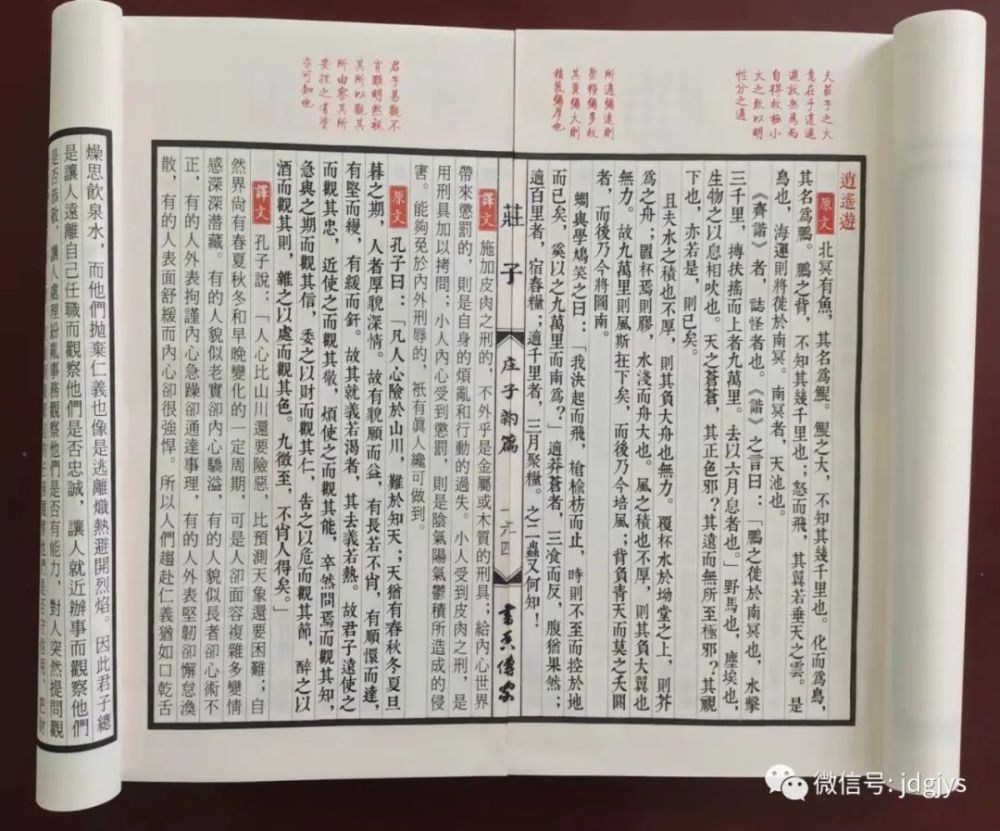 夫莊子之大
意在乎逍遙
遊放無為而
自得故極小
大之致以明
性分之適
所適彌遠則
聚糧彌多故
其翼彌大則
積氣彌厚也
逍遙遊
原文 北冥有魚，其名爲鯤。鯤之大，不知其幾千里也。化而爲鳥，
其名爲鵬。鵬之背，不知其幾千里也；怒而飛，其翼若垂天之雲。是
鳥也，海運則將徙於南冥。南冥者，天池也。
《齊諧》者，誌怪者也。《諧》之言曰：「鵬之徙於南冥也，水擊
三千里，摶扶搖而上者九萬里。去以六月息者也。」野馬也，塵埃也，
生物之以息相吹也。天之蒼蒼，其正色邪？其遠而無所至極邪？其視
下也，亦若是，則已矣。
且夫水之積也不厚，則其負大舟也無力。覆杯水於坳堂之上，則芥
爲之舟；置杯焉則膠，水淺而舟大也。風之積也不厚，則其負大翼也
無力。故九萬里則風斯在下矣，而後乃今培風；背負青天而莫之夭閼
者，而後乃今將圖南。
蜩與學鳩笑之曰：「我決起而飛，槍榆枋而止，時則不至而控於地
而已矣，奚以之九萬里而南爲？」適莽蒼者，三飡而反，腹猶果然；
適百里者，宿舂糧；適千里者，三月聚糧。之二蟲又何知！
莊子
庄子新篇
一六四
書香傳家
君子易觀不
肖難明然視
其所以觀其
所由察其所
安搜之有塗
亦可知也
譯文 施加皮肉之刑的，不外乎是金屬或木質的刑具；給內心世界
帶來懲罰的，則是自身的煩亂和行動的過失。小人受到皮肉之刑，是
用刑具加以拷問；小人內心受到懲罰，則是陰氣陽氣鬱積所造成的侵
害。能夠免於內外刑辱的，祇有眞人纔可做到。
原文 孔子曰：「凡人心險於山川，難於知天；天猶有春秋冬夏旦
暮之期，人者厚貌深情。故有貌願而益，有長若不肖，有順懁而達，
有堅而縵，有緩而釬。故其就義若渴者，其去義若熱。故君子遠使之
而觀其忠，近使之而觀其敬，煩使之而觀其能，卒然問焉而觀其知，
急與之期而觀其信，委之以財而觀其仁，告之以危而觀其節，醉之以
酒而觀其則，雜之以處而觀其色。九徵至，不肖人得矣。」
譯文 孔子說：「人心比山川還要險惡，比預測天象還要困難；自
然界尙有春夏秋冬和早晚變化的一定周期，可是人卻面容複雜多變情
感深深潛藏。有的人貌似老實卻內心驕溢，有的人貌似長者卻心術不
正，有的人外表拘謹內心急躁卻通達事理，有的人外表堅韌卻懈怠渙
散，有的人表面舒緩而內心卻很強悍。所以人們趨赴仁義猶如口乾舌
燥思飲泉水，而他們拋棄仁義也像是逃離熾熱避開烈焰。因此君子總
是讓人遠離自己任職而觀察他們是否忠誠，讓人就近辦事而觀察他們
是否恭敬，讓人處理紛亂事務觀察他們是否有能力，對人突然提問觀
微信号: jdgjys